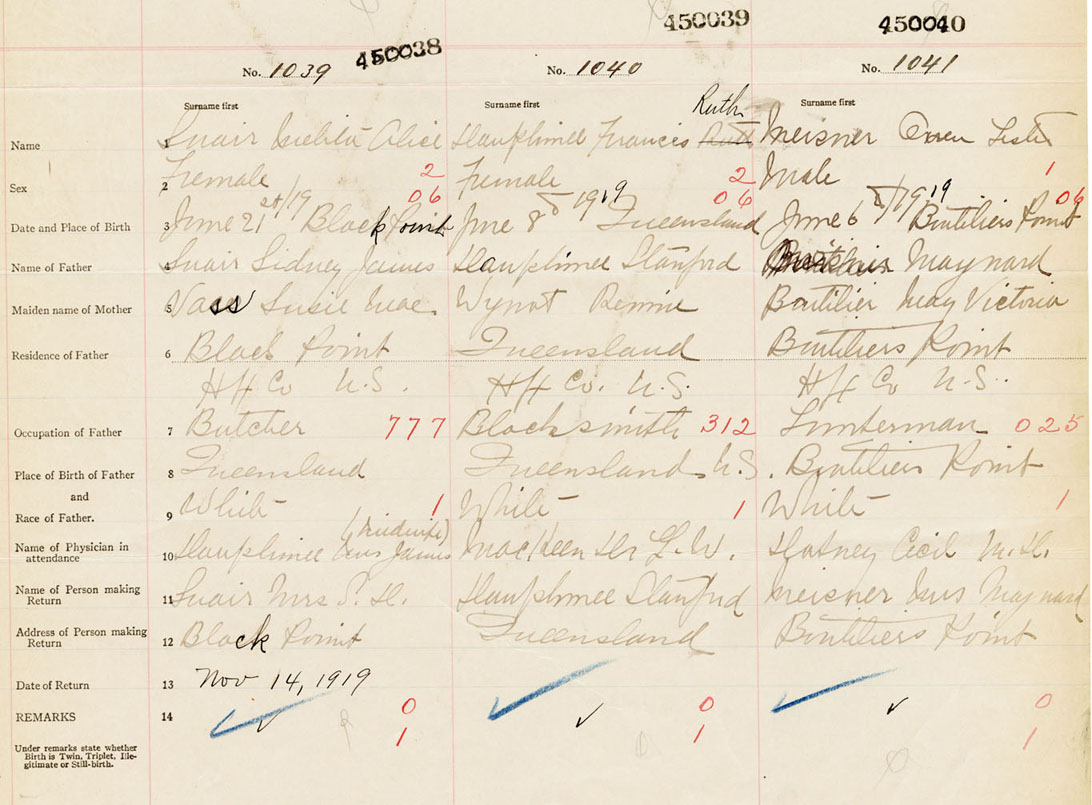 450038 450039 450040
No. 1039 No. 1040 No. 1041
Surname first Surname first Surname first
Ruth
Name 1 Snair Alice Francis Meisner Owen
Sex 2 Female 2 Female 2 Male 1
06 06 06
Date and Place of Birth 3 June 21st/19 Black Point June 8 1919 Queensland June 6 1919 Boutiliers Point
Name of Father 4 Snair Sidney James Stanford Maynard
Maiden name of Mother 5 Vass Susie Mae. Wynot Boutilier May Victoria
Residence of Father 6 Black Point Queensland Boutiliers Point
Hfx Co N.S. Hfx Co. N.S. Hfx Co N.S.
Occupation of Father 7 Butcher 777 Blacksmith 312 Lumberman 025
Place of Birth of Father 8 Queensland Queensland N.S. Boutiliers Point
and
Race of Father. 9 White 1 White 1 White 1
(Midwife)
Name of Physician in
attendance 10 James Cecil M.D.
Name of Person making
Return 11 Snair Mrs S. Stanford Meisner Mrs Maynard
Address of Person making
Return 12 Black Point Queensland Boutiliers Point
Date of Return 13 Nov 14, 1919
REMARKS 14 0 0 0
1 1 1
Under remarks state whether
Birth is Twin, Triplet, Ille-
gitimate or Still-birth.